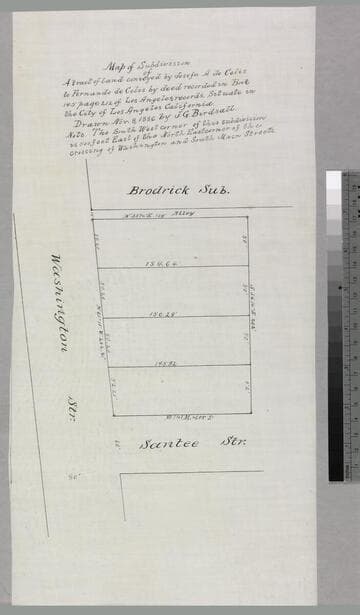 Map of Subdivision
of
A tract of Land conveyed by Josefa A de Celis
to Fernando de Celis by deed recorded in Book
page 212 of Los Angeles records. Situate in
the City of Los Angeles California.
Drawn Nov. 8, 1886 by J G Birdsall
Note. The South West corner of this subdivision
is feet East of the North East corner of the
crossing of Washington and South Main Streets
Brodrick Sub.
Alley
154.64
150.28
145.92
Washington
Str.
Santee Str.
80'